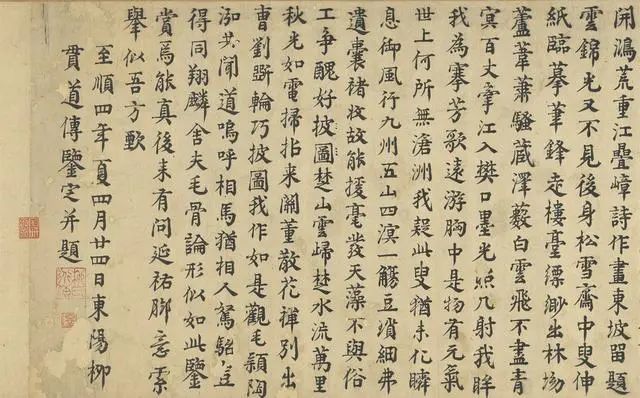 開鴻荒重江疊嶂詩作畫東坡留題
雲錦光又不見後身松雪齋中叟伸
紙臨摹筆鋒走樓臺縹緲出林坳
蘆葦蕭騷藏澤藪白雲飛不盡青
冥百丈牽江入樊口墨光照几射我眸
我為搴芳歌遠游胸中是物有元氣
世上何所無滄洲我疑此叟猶未化瞬
息御風行九州五山四溟一觴豆瑣細弗
遺囊褚收故能援毫發天藻不與俗
工爭醜好披圖楚山雲歸楚水流萬里
秋光如電掃拈来關董散花禪別出
曹劉斲輪巧披圖我作如是觀毛穎陶
泓共聞道嗚呼相馬猶相人駑駘豈
得同翔麟舍夫毛骨論形似如此鑒
賞焉能真後来有問延祐脚意索
舉似吾方歅
至順四年夏四月廿四日東陽柳
貫道傳鑒定并題